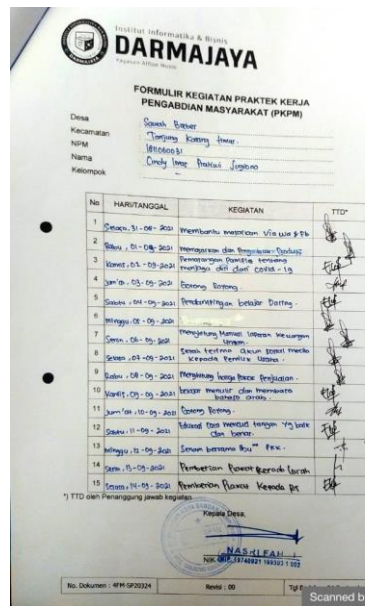 Institut Informatika & Bisnis
DARMAJAYA
Yayasan Alfian Husin
FORMULIR KEGIATAN PRAKTEK KERJA
PENGABDIAN MASYARAKAT (PKPM)
Desa Sawah Brebes
Kecamatan Tanjung Karang Timur
NPM
Nama Cindy Intan
Kelompok
No HARI/TANGGAL KEGIATAN TTD*
1 Selasa, 31-08-2021 Membantu Via Wa & Fb
2 Rabu, 01-09-2021 Memasarkan dan
3 Kamis, 02-09-2021 Pemasangan Pamflet tentang
menjaga diri dari covid-19
4 Jum'at, 03-09-2021 Gotong Royong.
5 Sabtu, 04-09-2021 Pendampingan belajar Daring.
6 Minggu, 05-09-2021
7 Senin, 06-09-2021 Menghitung Manual laporan keuangan
Umkm.
8 Selasa, 07-09-2021 Serah terima akun sosial media
kepada Pemilik Usaha.
9 Rabu, 08-09-2021 Menghitung harga Pokok Penjualan.
10 Kamis, 09-09-2021 belajar menulis dan membaca
bahasa arab.
11 Jum'at, 10-09-2021 Gotong Royong.
12 Sabtu, 11-09-2021 Edukasi cara mencuci tangan yg baik
dan benar.
13 Minggu, 12-09-2021 Senam bersama Ibu" PKK.
14 Senin, 13-09-2021 Pemberian Plakat kepada Lurah
15 Selasa, 14-09-2021 Pemberian Plakat Kepada Rt
*) TTD oleh Penanggung jawab kegiatan
Kepala Desa,
NASRI FAH I
No. Dokumen : 4FM-SP20324 Revisi : 00 Tgl
Scanned b